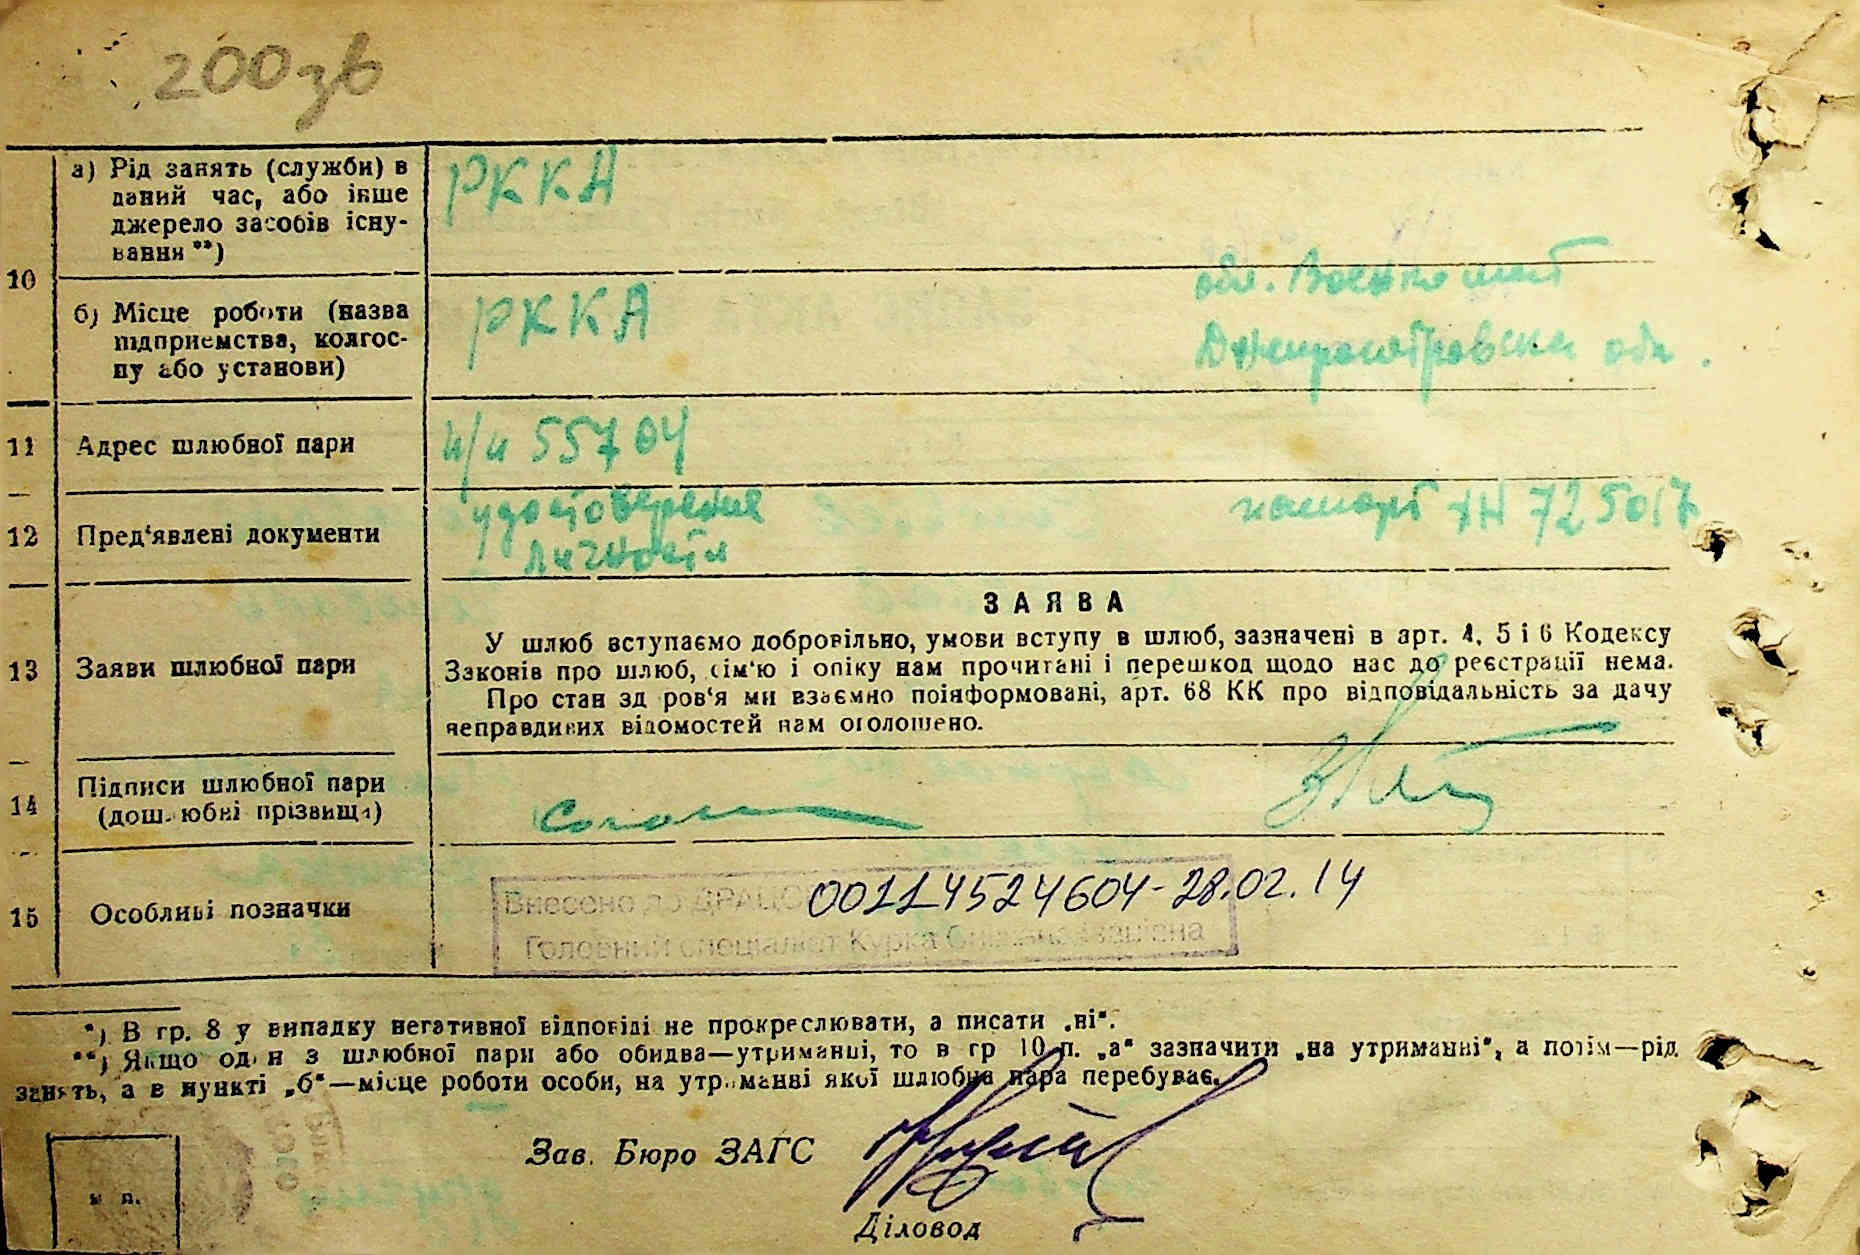 200зв
а) Рід занять (служби) в
даний час, або інше
джерело засобів існу-
вання **)
РККА
10
б) Місце роботи (назва
підприємства, колгос-
пу або установи)
РККА
обл. Военкомат
Днепропетровска обл.
11 Адрес шлюбної пари
п/п 55704
12 Пред'явлені документи
удостоверение
личности
паспорт 725017
13 Заяви шлюбної пари
ЗАЯВА
У шлюб вступаємо добровільно, умови вступу в шлюб, зазначені в арт. 4, 5 і 6 Кодексу
Законів про шлюб, сім'ю і опіку нам прочитані і перешкод щодо нас до реєстрації нема.
Про стан здоров'я ми взаємно поінформовані, арт. 68 КК про відповідальність за дачу
неправдивих відомостей нам оголошено.
14 Підписи шлюбної пари
(дошлюбні прізвища)
15 Особливі позначки
Внесено до ДРАЦС
00114524604-28.02.14
Головний спеціаліст Курка
*) В гр. 8 у випадку негативної відповіді не прокреслювати, а писати „ні“.
**) Якщо один з шлюбної пари або обидва—утриманці, то в гр 10 п. „а“ зазначити „на утриманні“, а потім—рід
занять, а в пункті „б“—місце роботи особи, на утриманні якої шлюбна пара перебуває.
Зав. Бюро ЗАГС
м п.
Діловод